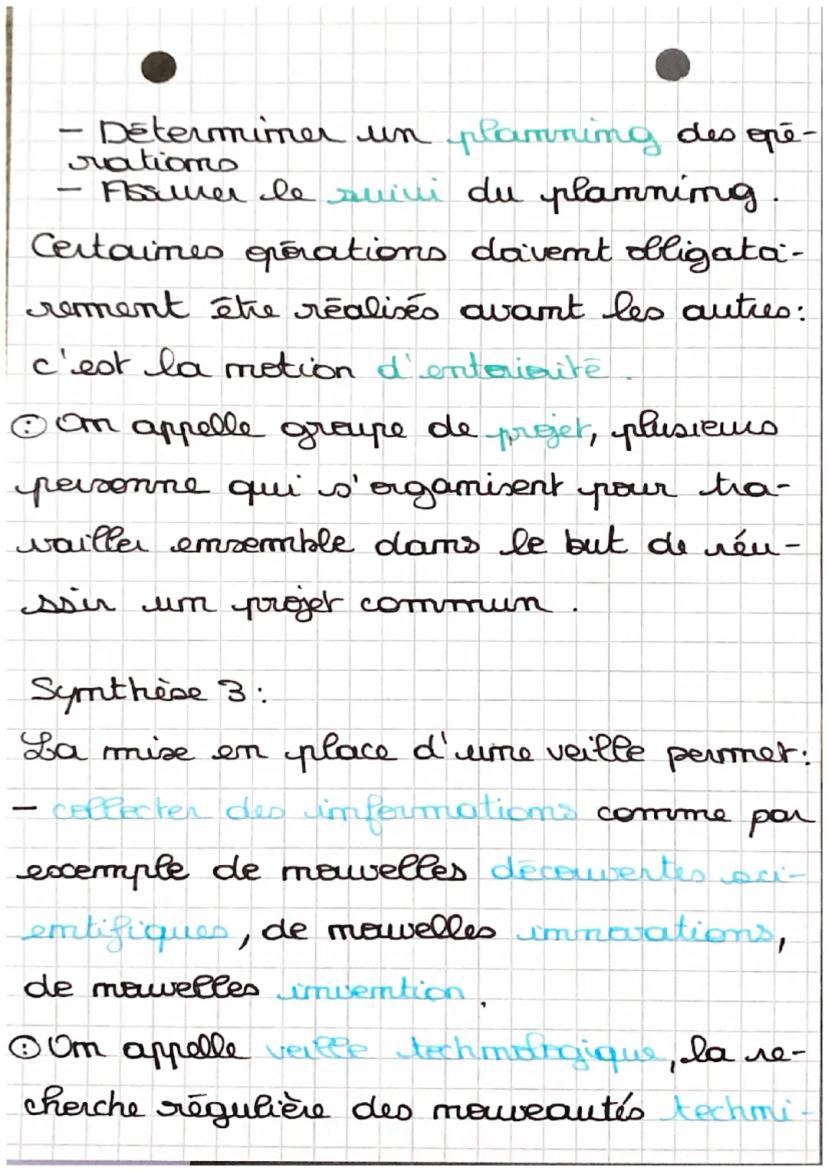 - Déterminer un planning des opé-
rations
- Assurer le suivi du planning.
Certaines opérations doivent obligatoi-
rement être réalisés avant les autres:
c'est la notion d'enteriorité.
: On appelle groupe de projet, plusieurs
personne qui s'organisent pour tra-
vailler ensemble dans le but de réu-
ssir un projet commun.
Synthèse 3:
La mise en place d'une veille permet:
- collecter des informations comme par
exemple de nouvelles découvertes sci-
entifiques, de nouvelles innovations,
de nouvelles invention.
: On appelle veille technologique, la re-
cherche régulière des nouveautés techni-